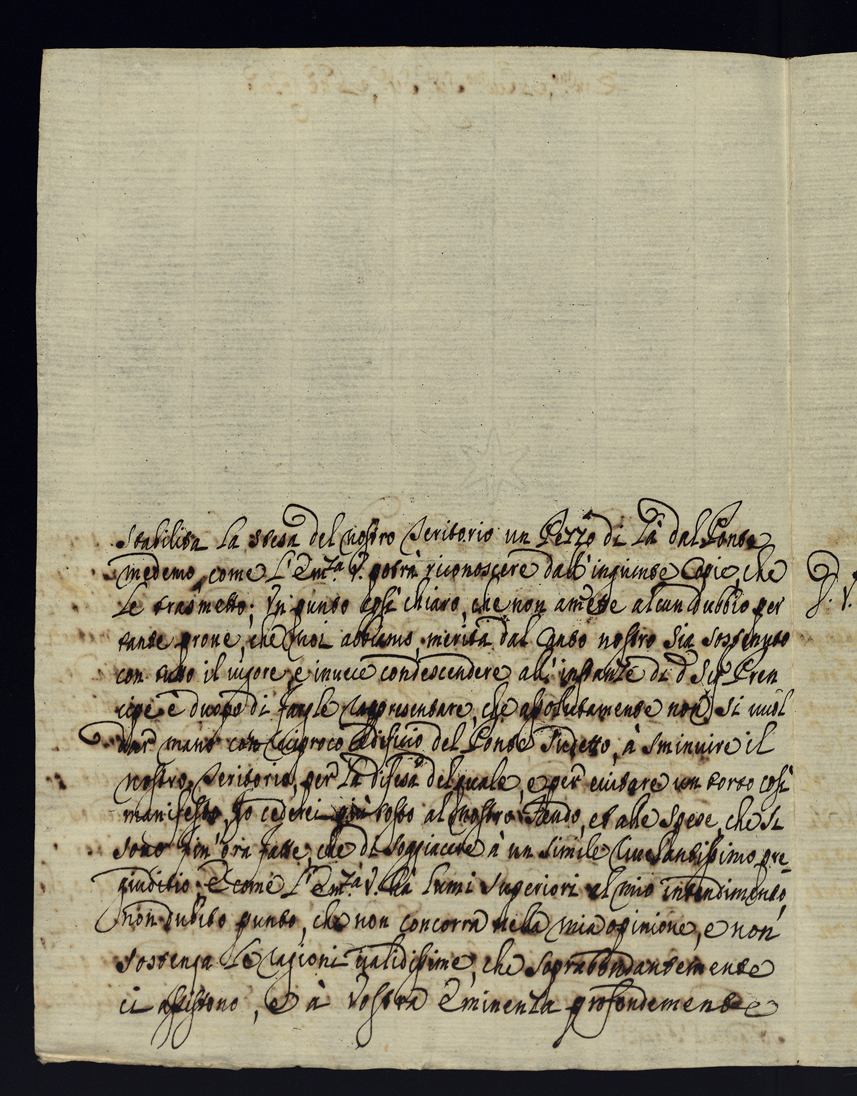 stabilita la stesa del nostro Teritorio un Pezzo di là dal Ponte
medemo, come l'Em.za V. potrà riconoscere dall'ingiunte Copie, che
le trasmetto; In punto così chiaro, che non amette alcun dubbio per
tante prove, che noi abbiamo, merita dal canto nostro sia sostenuto
con tutto il vigore, e invece condescendere all'instante di d.o Sig.r Pren
cipe è duopo di fargle rappresentare, che assolutamente non si vuol
dar mano con reciproco edificio del Ponte sudetto, à sminuire il
nostro Teritorio, per la difesa del quale, e per evitare un torto così
manifesto, Io cederei più tosto al nostro Feudo, et alle spese, che si
sono fin'ora fatte, che di soggiacere à un simile rilevantissimo pre-
giuditio. E come l'Em.za V. hà lumi superiori al mio intendimento,
non dubito punto, che non concorra nella mia opinione, e non
sostenga le ragioni validissime, che soprabondantemente
ci assistono, e à Vostra Eminenza profondemente